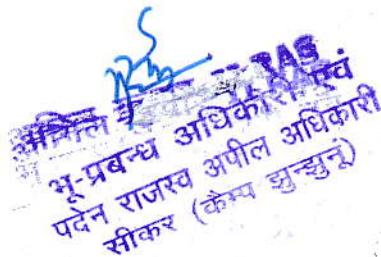 अनिल कु RAS
भू-प्रबन्ध अधिकारी एवं
पदेन राजस्व अपील अधिकारी
सीकर (कैम्प झुन्झुनू)